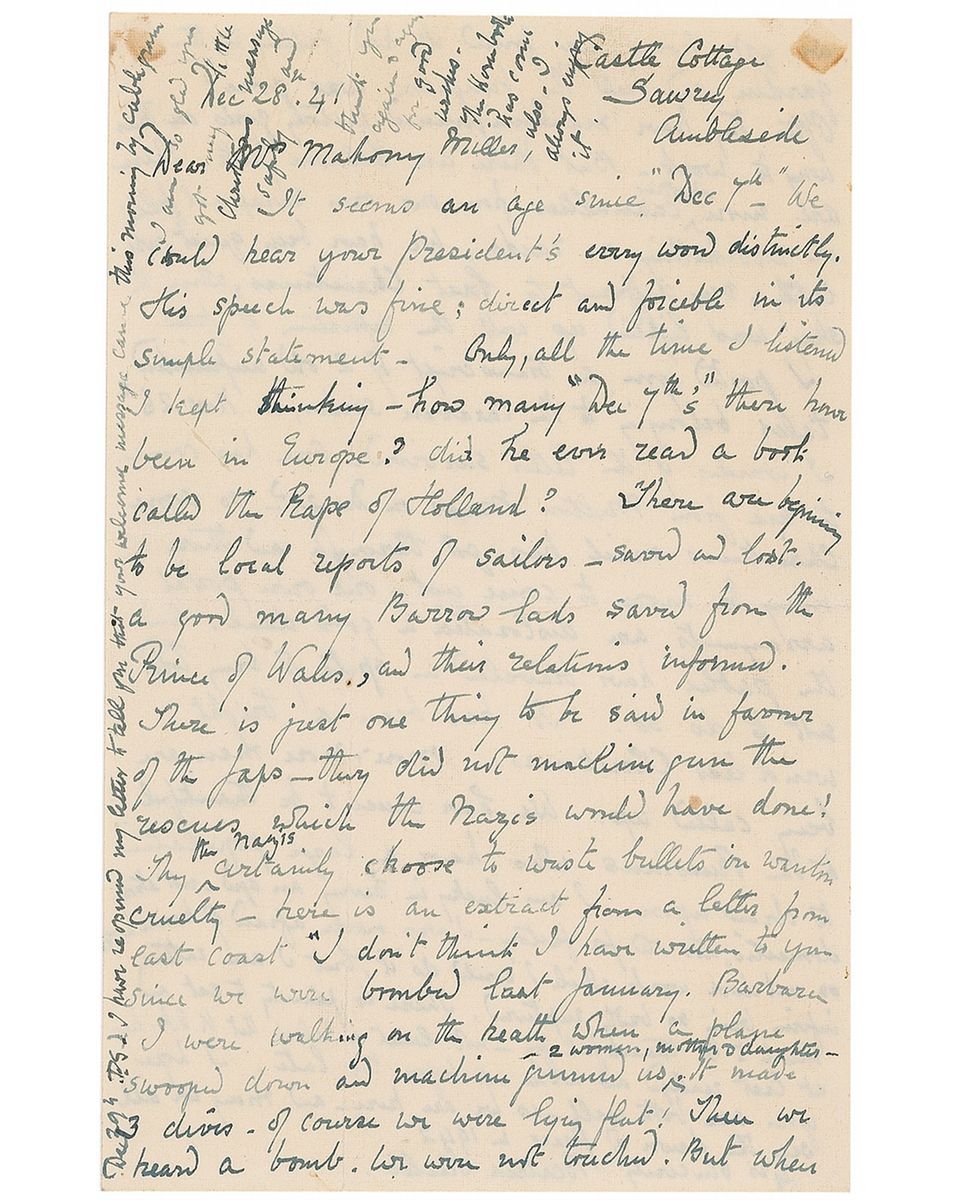 Castle Cottage
Sawrey
Ambleside
Dec 28th. 41
Dear Mrs Mahony Miller,
It seems an age since "Dec 7th" - We
could hear your President's every word distinctly.
His speech was fine; direct and forcible in its
simple statement - Only, all the time I listened
I kept thinking - how many "Dec 7th's" there have
been in Europe? did he ever read a book
called the Rape of Holland? There are begining
to be local reports of sailors - saved and lost.
a good many Barrow lads saved from the
Prince of Wales, and their relations informed.
There is just one thing to be said in favour
of the Japs - they did not machine gun the
rescues, which the Nazis would have done!
They the Nazis certainly choose to waste bullets in wanton
cruelty - here is an extract from a letter from
east coast "I don't think I have written to you
since we were bombed last January. Barbara
I were walking on the heath when a plane
swooped down and machine gunned us, - 2 women, mother & daughter - it made
3 dives - of course we were lying flat! Then we
heard a bomb. We were not touched. But when
Dec 29th. PS 2 I have reopened my letter to tell you that your welcome message came this morning by cablegram
I am so glad you
got my little
Christmas message
safely and
thank you
again & again
for good
wishes -
The Hornbook
has come
also - I
always enjoy
it